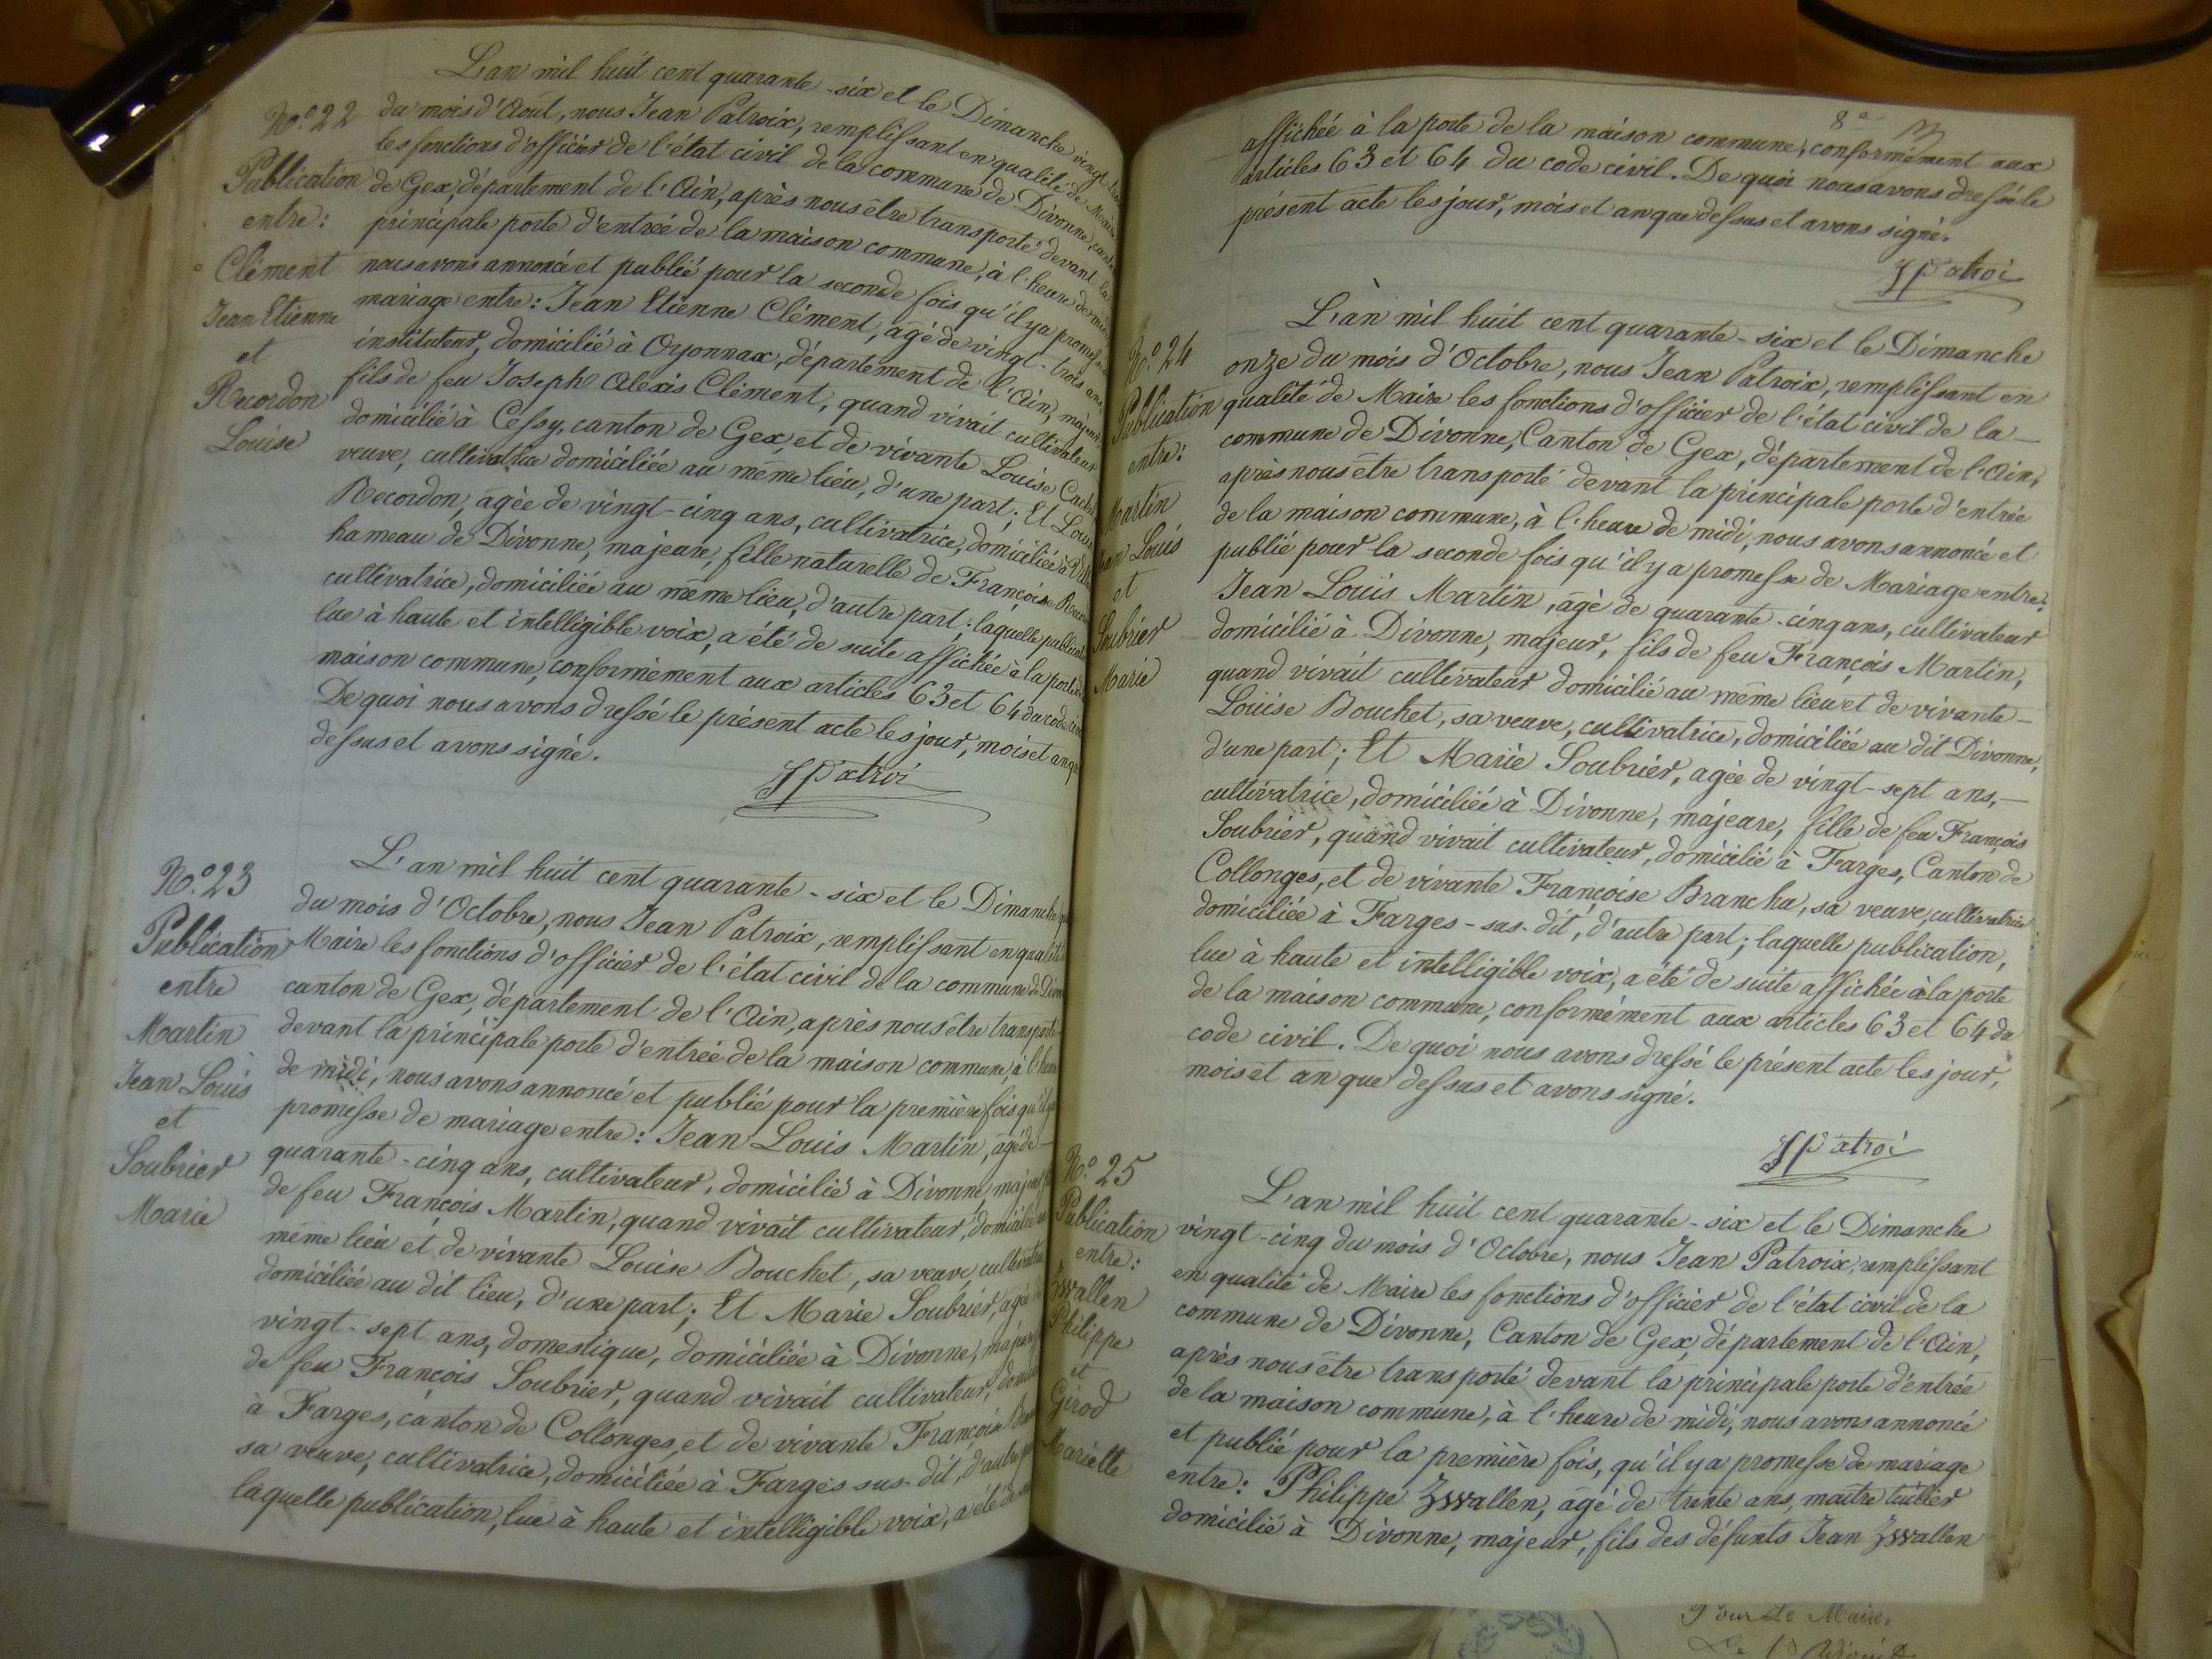 L'an mil huit cent quarante-six et le Dimanche vingt
No. 22
du mois d'Août, nous Jean Patroix, remplissant en qualité de Maire
les fonctions d'officier de l'état civil de la commune de Divonne,
Publication
de Gex, département de l'Ain, après nous être transporté devant la
entre:
principale porte d'entrée de la maison commune, à l'heure de midi
Clément
nous avons annoncé et publié pour la seconde fois qu'il y a promesse
Jean Etienne
mariage entre: Jean Etienne Clément, âgé de vingt-trois ans,
et
instituteur, domicilié à Oyonnax, département de l'Ain, majeur,
Recordon
fils de feu Joseph Alexis Clément, quand vivait cultivateur
Louise
domicilié à Cessy, canton de Gex, et de vivante Louise
veuve, cultivatrice domiciliée au même lieu, d'une part; Et
Recordon, agée de vingt-cinq ans, cultivatrice, domiciliée à
hameau de Divonne, majeure, fille naturelle de Françoise
cultivatrice, domiciliée au même lieu, d'autre part; laquelle
lue à haute et intelligible voix, a été de suite affichée à la porte
maison commune, conformément aux articles 63 et 64 du code
De quoi nous avons dressé le présent acte les jour, mois et an
dessus et avons signé.
JPatroi
L'an mil huit cent quarante-six et le Dimanche
No. 23
du mois d'Octobre, nous Jean Patroix, remplissant en qualité
Publication
Maire les fonctions d'officier de l'état civil de la commune de
entre
canton de Gex, département de l'Ain, après nous être transporté
Martin
devant la principale porte d'entrée de la maison commune, à
Jean Louis
de midi, nous avons annoncé et publié pour la première fois qu'il
et
promesse de mariage entre: Jean Louis Martin, âgé de
Soubrier
quarante-cinq ans, cultivateur, domicilié à Divonne,
Marie
de feu François Martin, quand vivait cultivateur, domicilié
même lieu et de vivante Louise Bouchet, sa veuve,
domiciliée au dit lieu, d'une part; Et Marie Soubrier, agée
vingt-sept ans, domestique, domiciliée à Divonne,
de feu François Soubrier, quand vivait cultivateur,
à Farges, canton de Collonges, et de vivante Françoise
sa veuve, cultivatrice, domiciliée à Farges sus-dit, d'autre
laquelle publication, lue à haute et intelligible voix, a été
8e
affichée à la porte de la maison commune, conformément aux
articles 63 et 64 du code civil. De quoi nous avons dressé le
présent acte les jour, mois et an que dessus et avons signé.
JPatroi
L'an mil huit cent quarante-six et le Dimanche
No. 24
onze du mois d'Octobre, nous Jean Patroix, remplissant en
Publication
qualité de Maire les fonctions d'officier de l'état civil de la
entre:
commune de Divonne, Canton de Gex, département de l'Ain,
Martin
après nous être transporté devant la principale porte d'entrée
Jean Louis
de la maison commune, à l'heure de midi, nous avons annoncé et
et
publié pour la seconde fois qu'il y a promesse de Mariage entre:
Soubrier
Jean Louis Martin, agé de quarante-cinq ans, cultivateur
Marie
domicilié à Divonne, majeur, fils de feu François Martin,
quand vivait cultivateur domicilié au même lieu et de vivante
Louise Bouchet, sa veuve, cultivatrice, domiciliée au dit Divonne,
d'une part; Et Marie Soubrier, agée de vingt-sept ans,
cultivatrice, domiciliée à Divonne, majeure, fille de feu François
Soubrier, quand vivait cultivateur, domicilié à Farges, Canton de
Collonges, et de vivante Françoise Brancha, sa veuve, cultivatrice
domiciliée à Farges-sus-dit, d'autre part; laquelle publication,
lue à haute et intelligible voix, a été de suite affichée à la porte
de la maison commune, conformément aux articles 63 et 64 du
code civil. De quoi nous avons dressé le présent acte les jour,
mois et an que dessus et avons signé.
JPatroi
No. 25
L'an mil huit cent quarante-six et le Dimanche
Publication
vingt-cinq du mois d'Octobre, nous Jean Patroix, remplissant
entre:
en qualité de Maire les fonctions d'officier de l'état civil de la
Zwallen
commune de Divonne, Canton de Gex, département de l'Ain,
Philippe
après nous être transporté devant la principale porte d'entrée
et
de la maison commune, à l'heure de midi, nous avons annoncé
Girod
et publié pour la première fois, qu'il y a promesse de mariage
Mariette
entre: Philippe Zwallen, âgé de trente ans, maître tuilier
domicilié à Divonne, majeur, fils des défunts Jean Zwallen
Pour Le Maire,